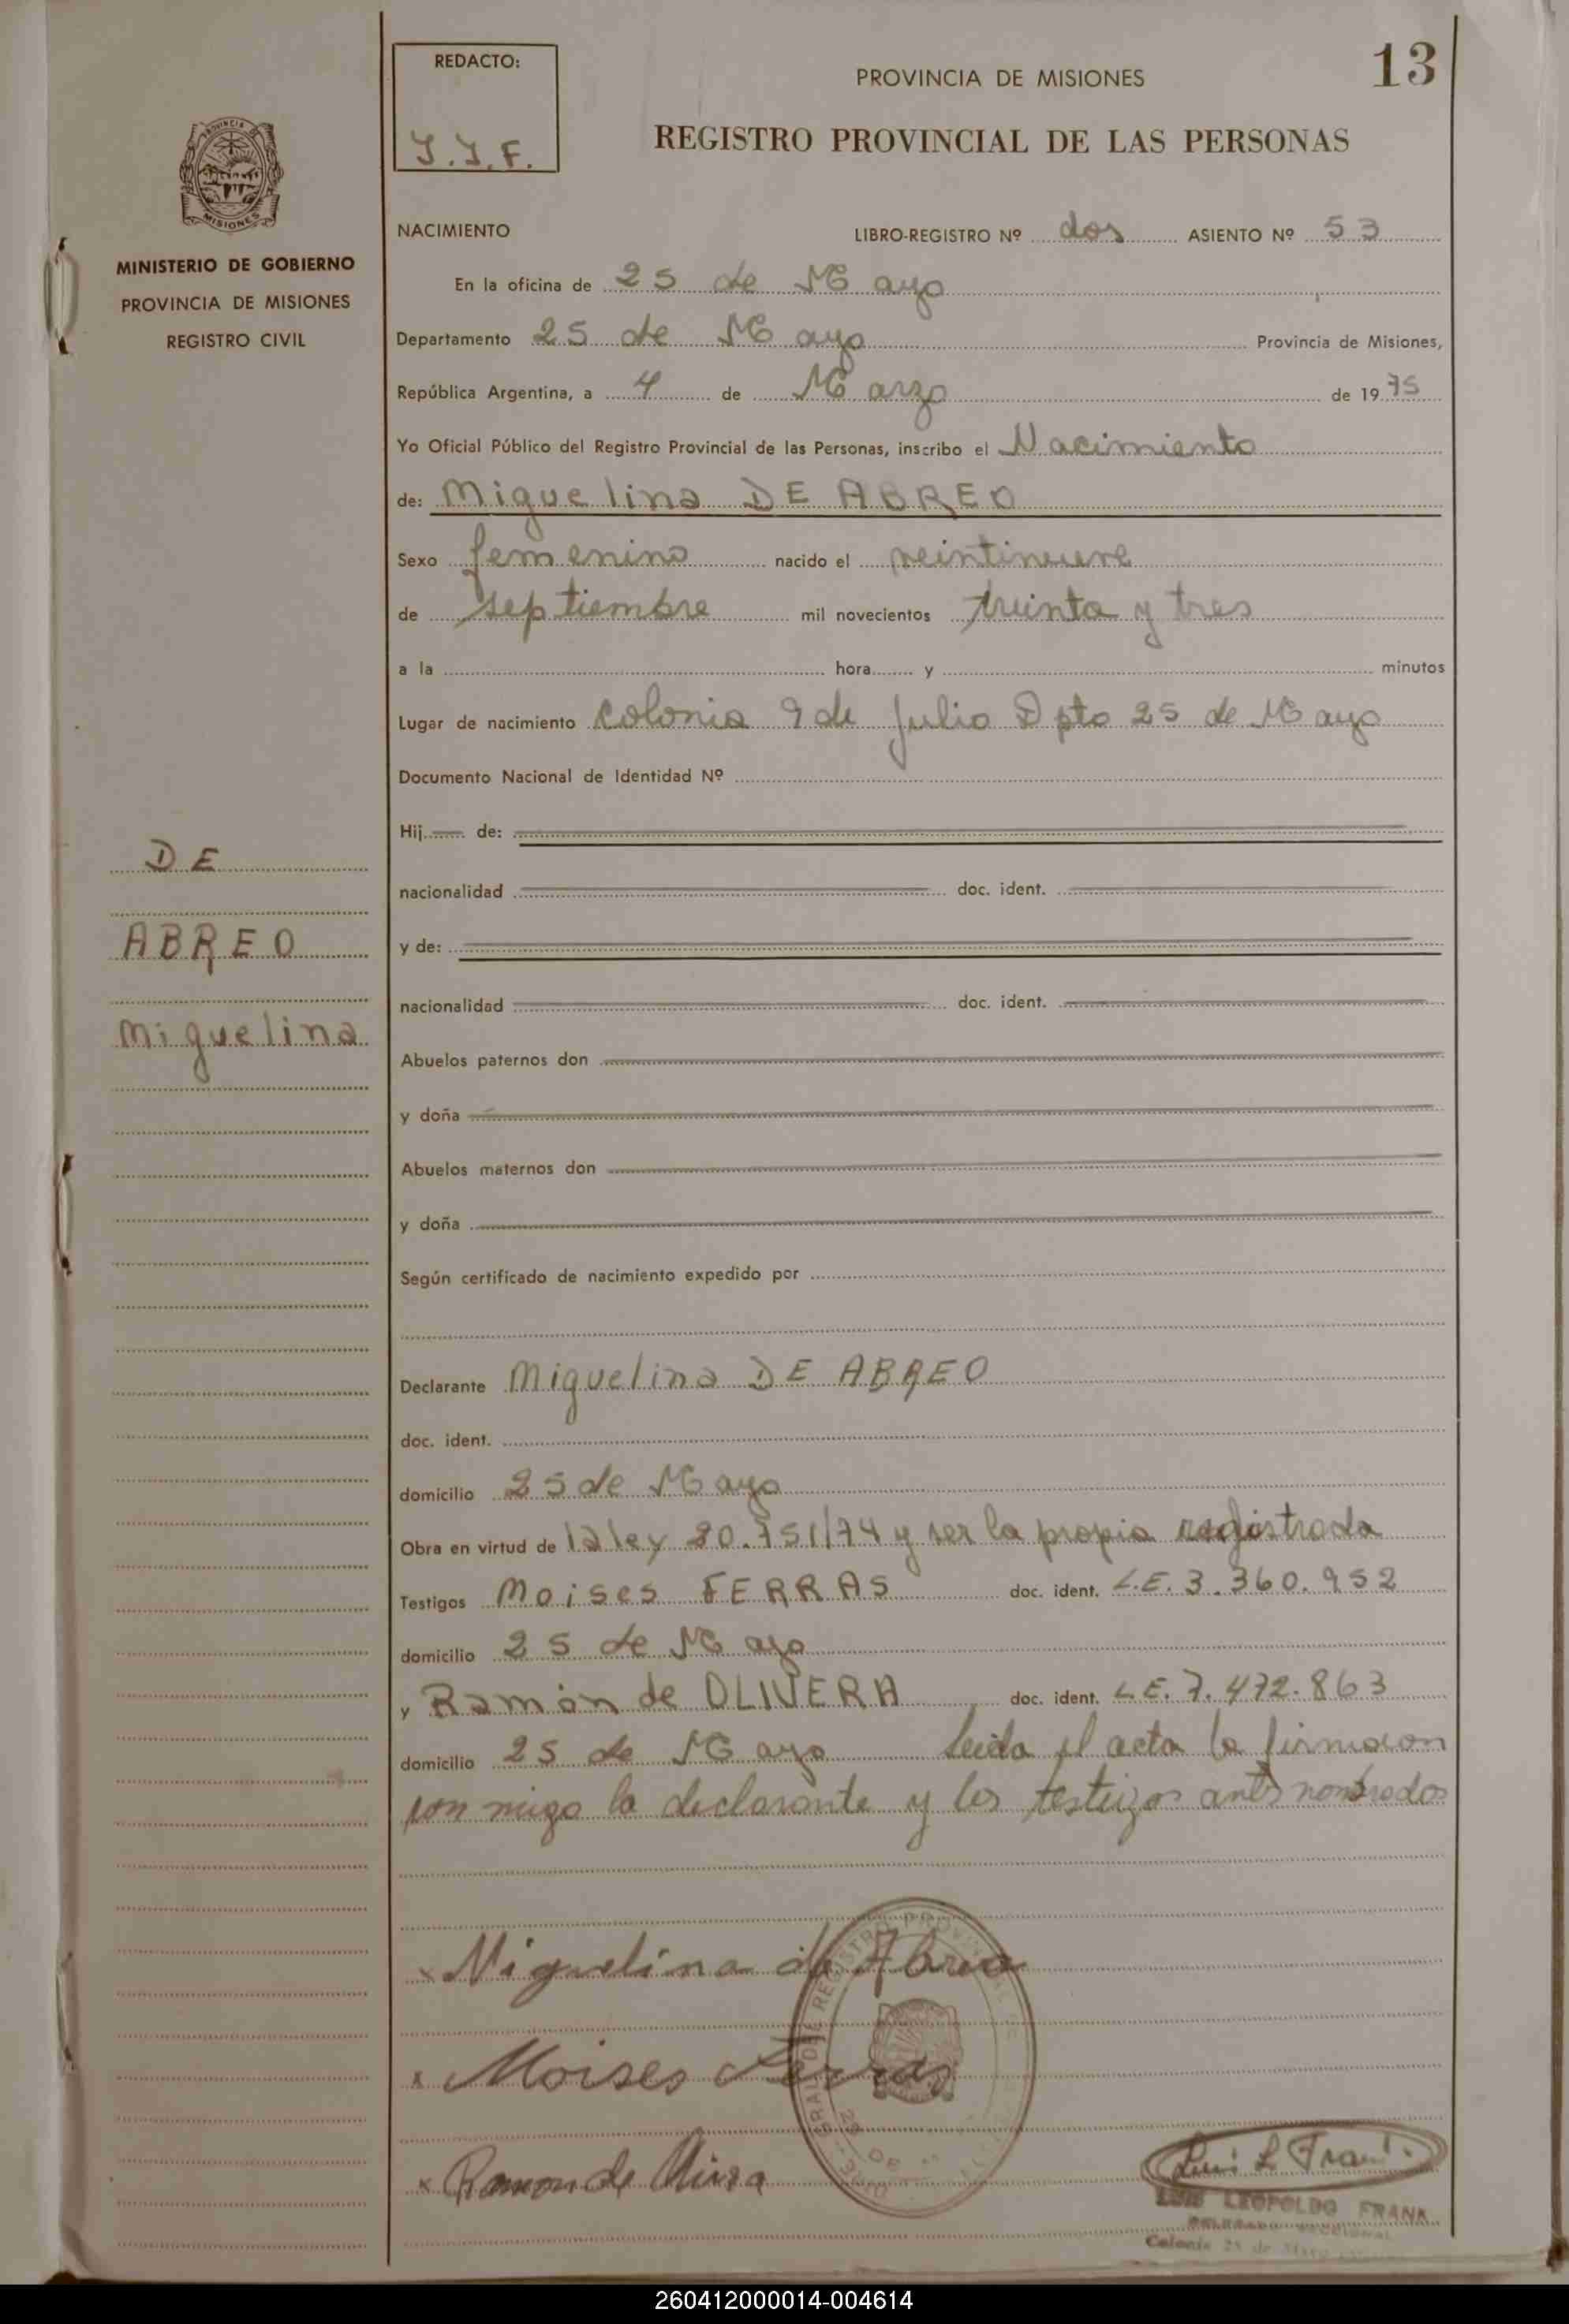 13
REDACTO:
J.J.F.
PROVINCIA DE MISIONES
REGISTRO PROVINCIAL DE LAS PERSONAS
PROVINCIA DE
MISIONES
MINISTERIO DE GOBIERNO
PROVINCIA DE MISIONES
REGISTRO CIVIL
NACIMIENTO LIBRO-REGISTRO Nº dos ASIENTO Nº 53
En la oficina de 25 de Mayo
Departamento 25 de Mayo Provincia de Misiones,
República Argentina, a 4 de Marzo de 1975
Yo Oficial Público del Registro Provincial de las Personas, inscribo el Nacimiento
de: Miguelina DE ABREO
Sexo femenino nacido el veintinueve
de septiembre mil novecientos treinta y tres
a la hora y minutos
Lugar de nacimiento Colonia 9 de Julio Dpto 25 de Mayo
Documento Nacional de Identidad Nº
Hij de:
nacionalidad doc. ident.
y de:
nacionalidad doc. ident.
Abuelos paternos don
y doña
Abuelos maternos don
y doña
Según certificado de nacimiento expedido por
DE
ABREO
Miguelina
Declarante Miguelina DE ABREO
doc. ident.
domicilio 25 de Mayo
Obra en virtud de la ley 20.751/74 y ser la propia registrada
Testigos Moises FERRAS doc. ident. L.E. 3.360.952
domicilio 25 de Mayo
y Ramón de OLIVERA doc. ident. L.E. 7.472.863
domicilio 25 de Mayo Leida el acta la firmaron
con migo la declarante y los testigos antes nombrados
x Miguelina de Abreo
x Moises Ferras
x Ramon de
Luis L Frank
LUIS LEOPOLDO FRANK
Colonia 25 de Mayo
260412000014-004614